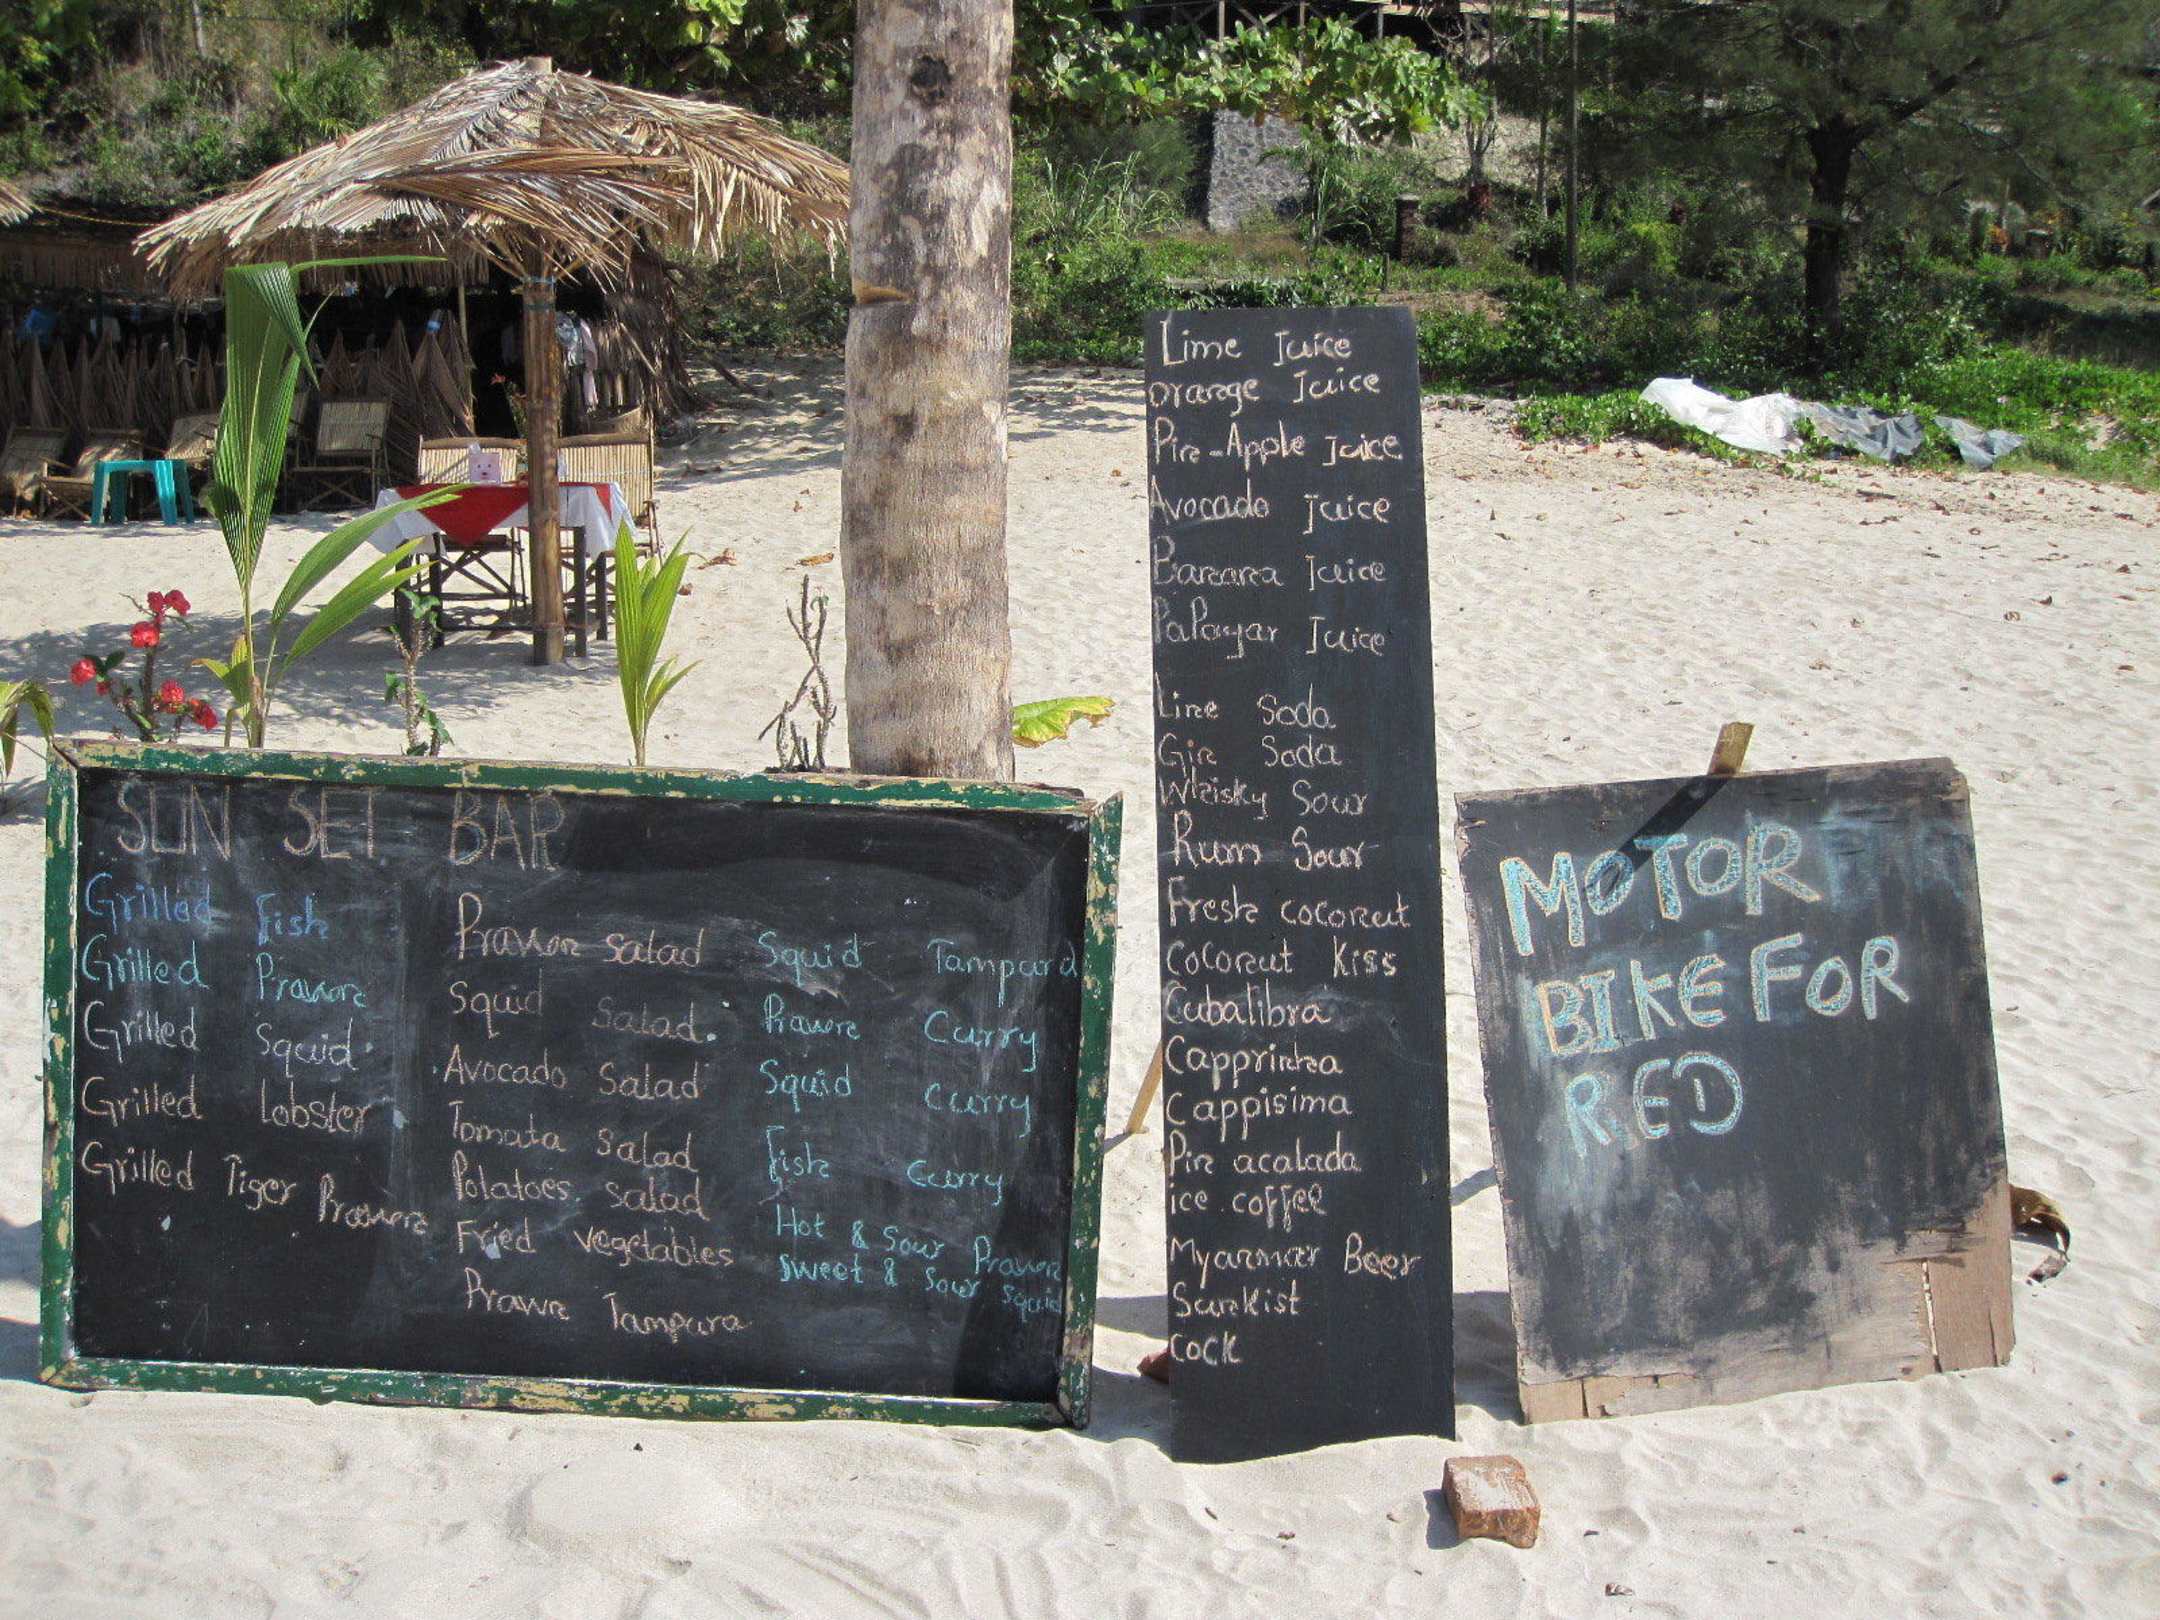 SUN SET BAR
Grilled Fish
Grilled Prawn
Grilled Squid
Grilled Lobster
Grilled Tiger Prawn
Prawn salad
Squid Salad.
Avocado Salad
Tomata Salad
Potatoes. Salad
Fried vegetables
Prawn Tampura
Squid Tampura
Prawn Curry
Squid Curry
Fish Curry
Hot & Sour Prawn
Sweet & Sour Squid
Lime Juice
Orange Juice
Pin-Apple Juice
Avocado Juice
Banana Juice
PaPayar Juice
Line Soda
Gin Soda
Whisky Sour
Rum Sour
Fresh coconut
Coconut Kiss
Cubalibra
Capprinha
Cappisima
Pin acalada
ice. coffee
Myanmar Beer
Sunkist
Cock
MOTOR
BIKE FOR
RED